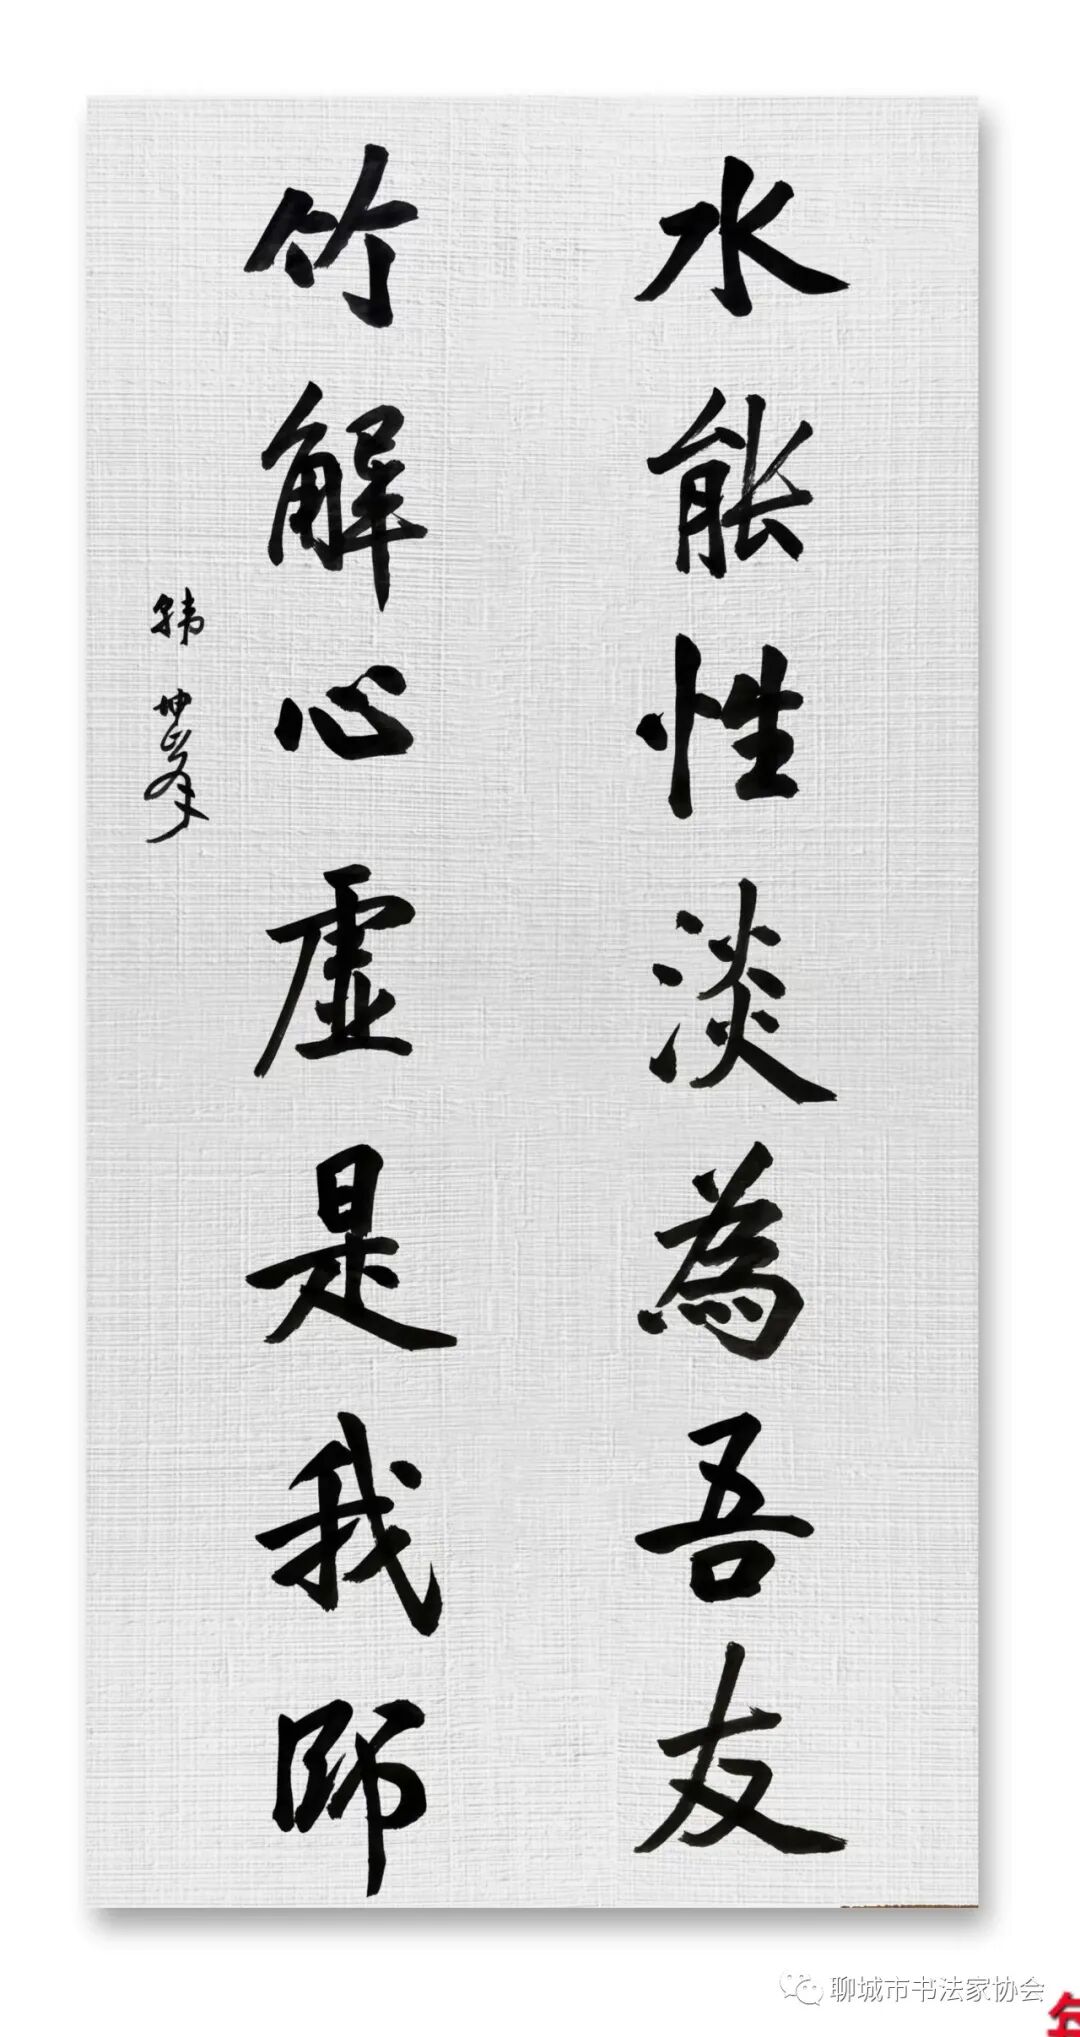 水能性淡為吾友
竹解心虛是我師
韩坤峯
聊城市书法家协会